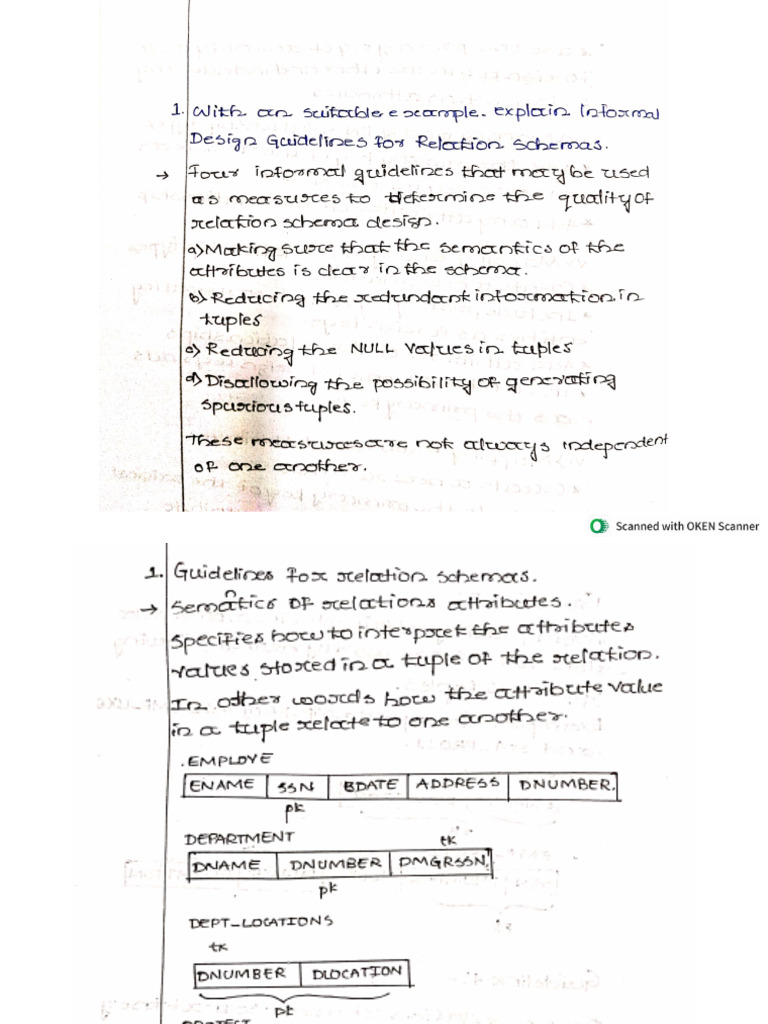 1. With an suitable example. explain Informal
Design Guidelines for Relation schemas.
→ Four informal guidelines that may be used
as measures to determine the quality of
relation schema design.
a) Making sure that the semantics of the
attributes is clear in the schema.
b) Reducing the redundant information in
tuples
c) Reducing the NULL values in tuples
d) Disallowing the possibility of generating
spurious tuples.
These measures are not always independent
of one another.
Scanned with OKEN Scanner
1. Guidelines for relation schemas.
→ Sematics of relations attributes.
n
Specifies how to interpret the attributes
values stored in a tuple of the relation.
In other words how the attribute value
in a tuple relate to one another.
.EMPLOYE
ENAME SSN BDATE ADDRESS DNUMBER.
pk
DEPARTMENT tk
DNAME DNUMBER DMGRSSN.
pk
DEPT-LOCATIONS
tk
DNUMBER DLOCATION
pk